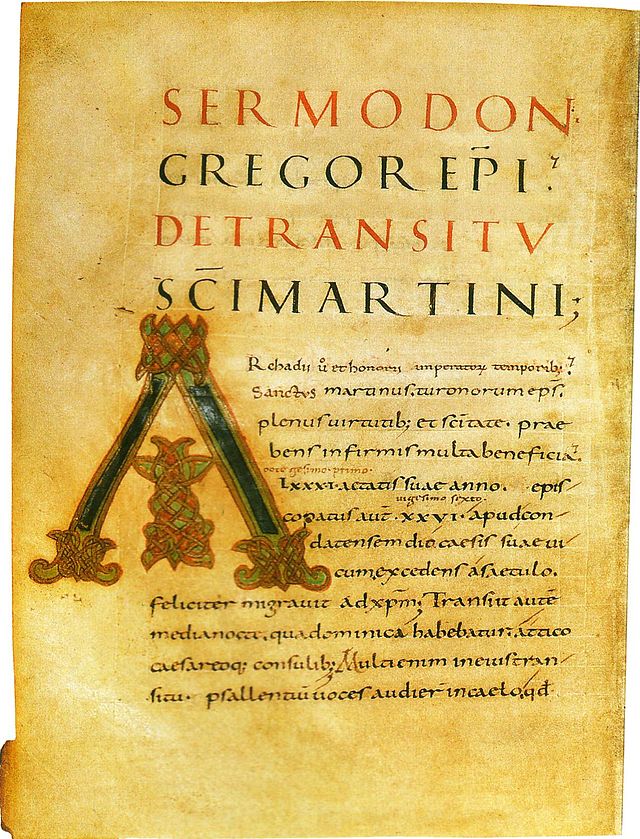 SERMO DON
GREGOR EP̄I
DE TRANSITV
SC̄I MARTINI;
ARchadii ū et honorii imperatoꝝ temporib;
Sanctus martinus. turonorum ep̄s.
plenus uirtutib; et sc̄itate. prae
bens infirmis multa beneficia.
octogesimo. primo.
Lxxxi. aetatis suae anno. epis
uigesimo sexto.
copatus aut̄ xxvi. apud con
datensem dioc̄aesis suae ui
cum, excedens a saeculo.
feliciter migrauit ad xp̄m; Transiit autē
media nocte, qua dominica habebatur. attico
caesareoq; consulib; Multi enim in eius tran
situ. psallentiū uoces audier̄ in caelo, qd̄